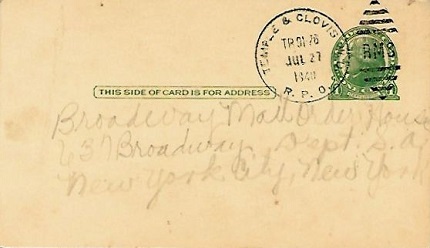 TEMPLE & CLOVIS
TR.91-76
JUL 27
1940
R.P.O.
RMS
THIS SIDE OF CARD IS FOR ADDRESS
Broadway Mail Order House
637 Broadway, Dept. S.A.
New York City, New York